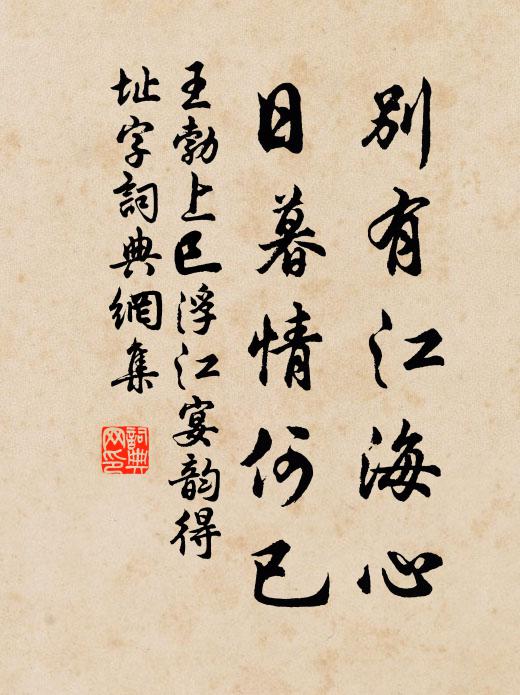 別有江海心
日暮情何已
王勃上巳浮江宴韵得
址字詞典網集
詞典
网印